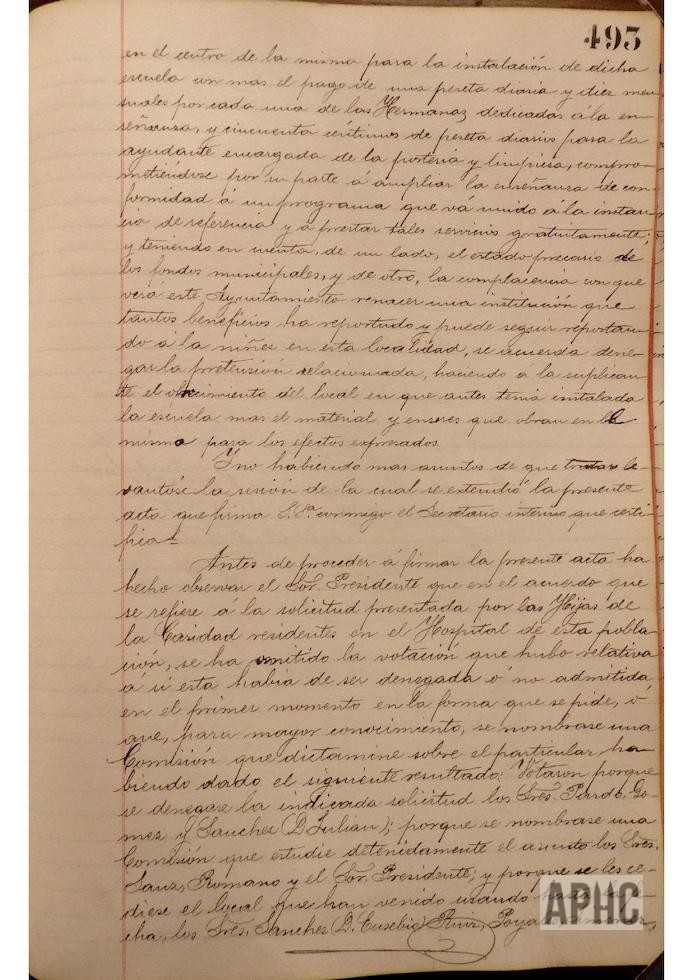 493
en el centro de la misma para la instalación de dicha
escuela con mas el pago de una peseta diaria y diez men
suales por cada una de las Hermanas dedicadas á la en
señanza, y cincuenta céntimos de peseta diarios para la
ayudante encargada de la porteria y limpiesa, compro-
metiéndose por su parte á ampliar la enseñanza de con-
formidad á un programa que vá unido á la instan-
cia de referencia y á prestar tales servicios gratuitamente;
y teniendo en cuenta, de un lado, el estado precario de
los fondos municipales, y de otro, la complacencia con que
verá este Ayuntamiento renacer una institución que
tantos beneficios ha reportado y puede seguir reportan-
do á la niñez en esta localidad, se acuerda dene-
gar la pretensión relacionada, haciendo a la suplican-
te el ofrecimiento del local en que antes tenia instalada
la escuela mas el material y enseres que obran en la
misma para los efectos expresados.
Y no habiendo mas asuntos de que tratar le-
vantóse la sesión de la cual se extendió la presente
acta que firma S. Sª. conmigo el Secretario interino que certi-
fica.
Antes de proceder á firmar la presente acta ha
hecho observar el Sor. Presidente que en el acuerdo que
se refiere a la solicitud presentada por las Hijas de
la Caridad residentes en el Hospital de esta pobla-
ción, se ha omitido la votación que hubo relativa
á si esta habia de ser denegada ó no admitida
en el primer momento en la forma que se pide, ó
que, para mayor conocimiento, se nombrase una
Comisión que dictamine sobre el particular, ha-
biendo dado el siguiente resultado: Votaron porque
se denegase la indicada solicitud los Sres. Pardo, Go-
mez y Sanchez (D. Julian); porque se nombrase una
Comisión que estudie detenidamente el asunto los Sres.
Sanz, Romano y el Sor. Presidente; y porque se les ce-
diese el local que han venido usando
cha, los Sres. Sanchez (D. Eusebio) Ruiz, Poyato
APHC